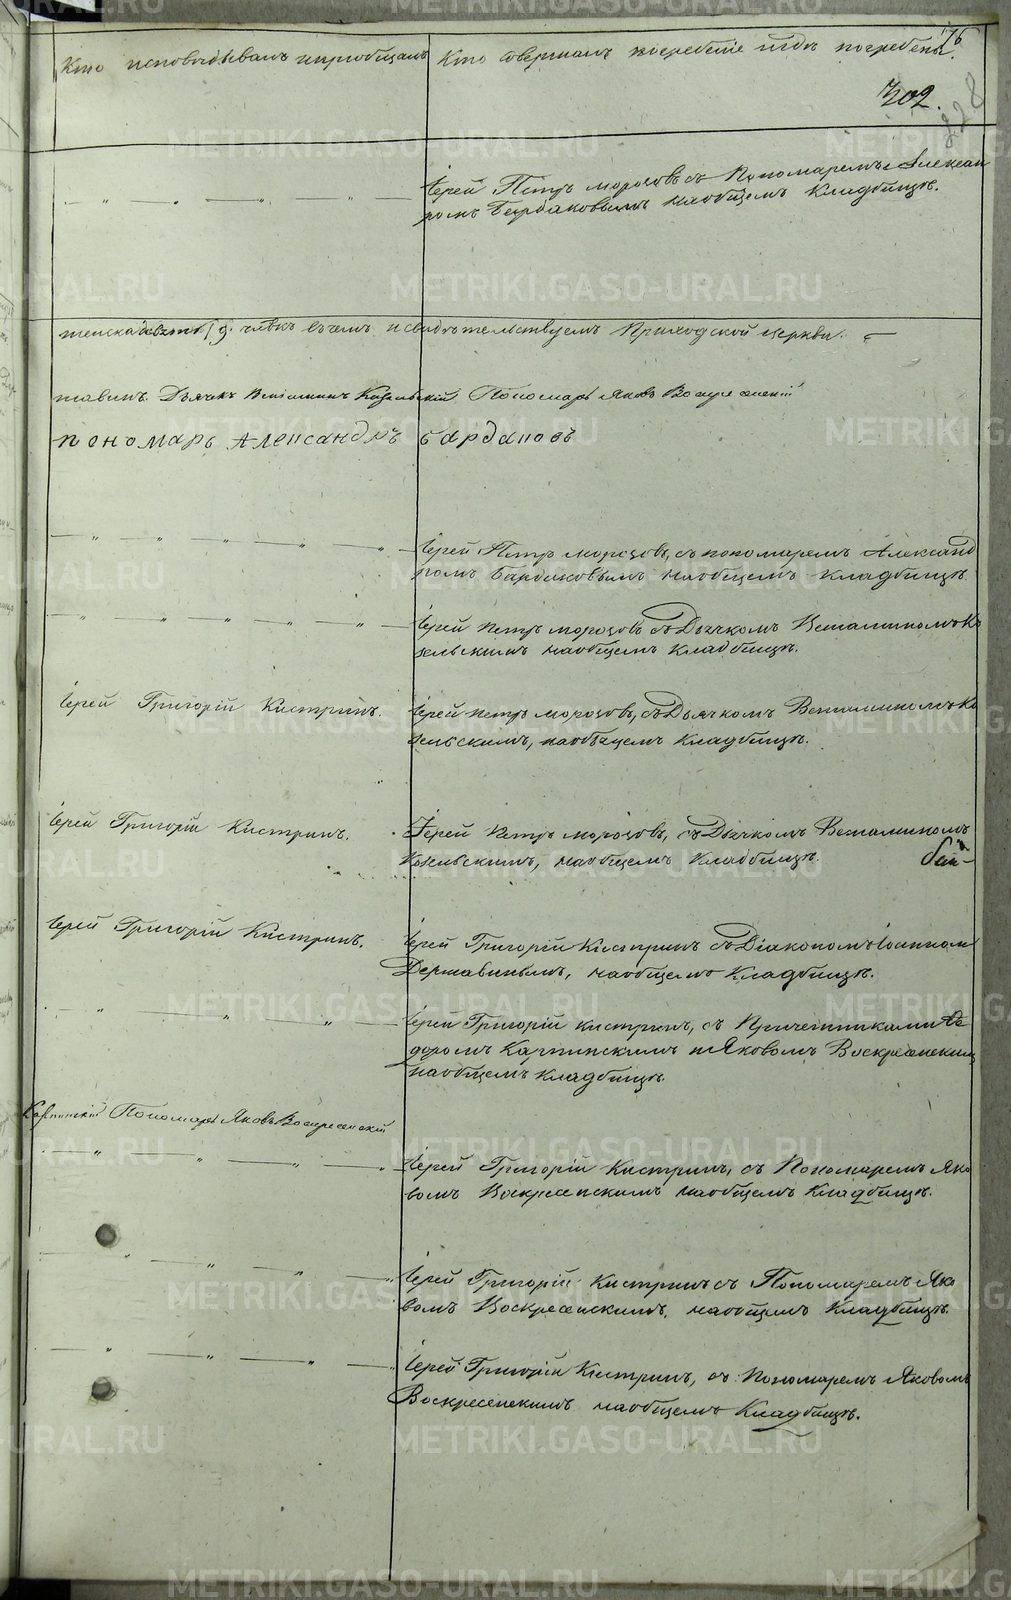 Кто исповѣдывалъ и пріобщалъ
Кто совершалъ погребеніе и гдѣ погребены.
176
302.
228
Іерей Петръ Морозовъ съ Пономаремъ Алексан
ромъ Бардаковымъ на общемъ Кладбищѣ.
женска 9. человѣкъ въ чемъ и свидѣтельствуемъ Приходской церкви:
Дьячекъ Веніаминъ Козельскій Пономарь Яковъ Воскресенскій
пономарь Александръ Бардаковъ
Іерей Петръ Морозовъ, съ пономаремъ Александ
ромъ Бардаковымъ на общемъ кладбищѣ
Іерей Петръ Морозовъ съ Дьячкомъ Веніаминомъ Ко
зельскимъ на общемъ Кладбищѣ.
Іерей Григорій Кистринъ.
Іерей Петръ Морозовъ, съ Дьячкомъ Веніаминомъ Ко
зельскимъ, на общемъ Кладбищѣ.
Іерей Григорій Кистринъ.
Іерей Петръ Морозовъ, съ Дьячкомъ Веніаминомъ
Козельскимъ, на общемъ Кладбищѣ.
Іерей Григорій Кистринъ.
Іерей Григорій Кистринъ съ Діакономъ Іоанномъ
Державинымъ, на общемъ Кладбищѣ.
Іерей Григорій Кистринъ, съ Причетниками Ѳе
доромъ Карпинскимъ и Яковомъ Воскресенскимъ
на общемъ Кладбищѣ.
Карпинскій Пономарь Яковъ Воскресенскій
Іерей Григорій Кистринъ, съ Пономаремъ Яко
вомъ Воскресенскимъ на общемъ Кладбищѣ.
Іерей Григорій Кистринъ съ Пономаремъ Яко
вомъ Воскресенскимъ, на общемъ Кладбищѣ.
Іерей Григорій Кистринъ, съ Пономаремъ Яковомъ
Воскресенскимъ на общемъ Кладбищѣ.
METRIKI.GASO-URAL.RU